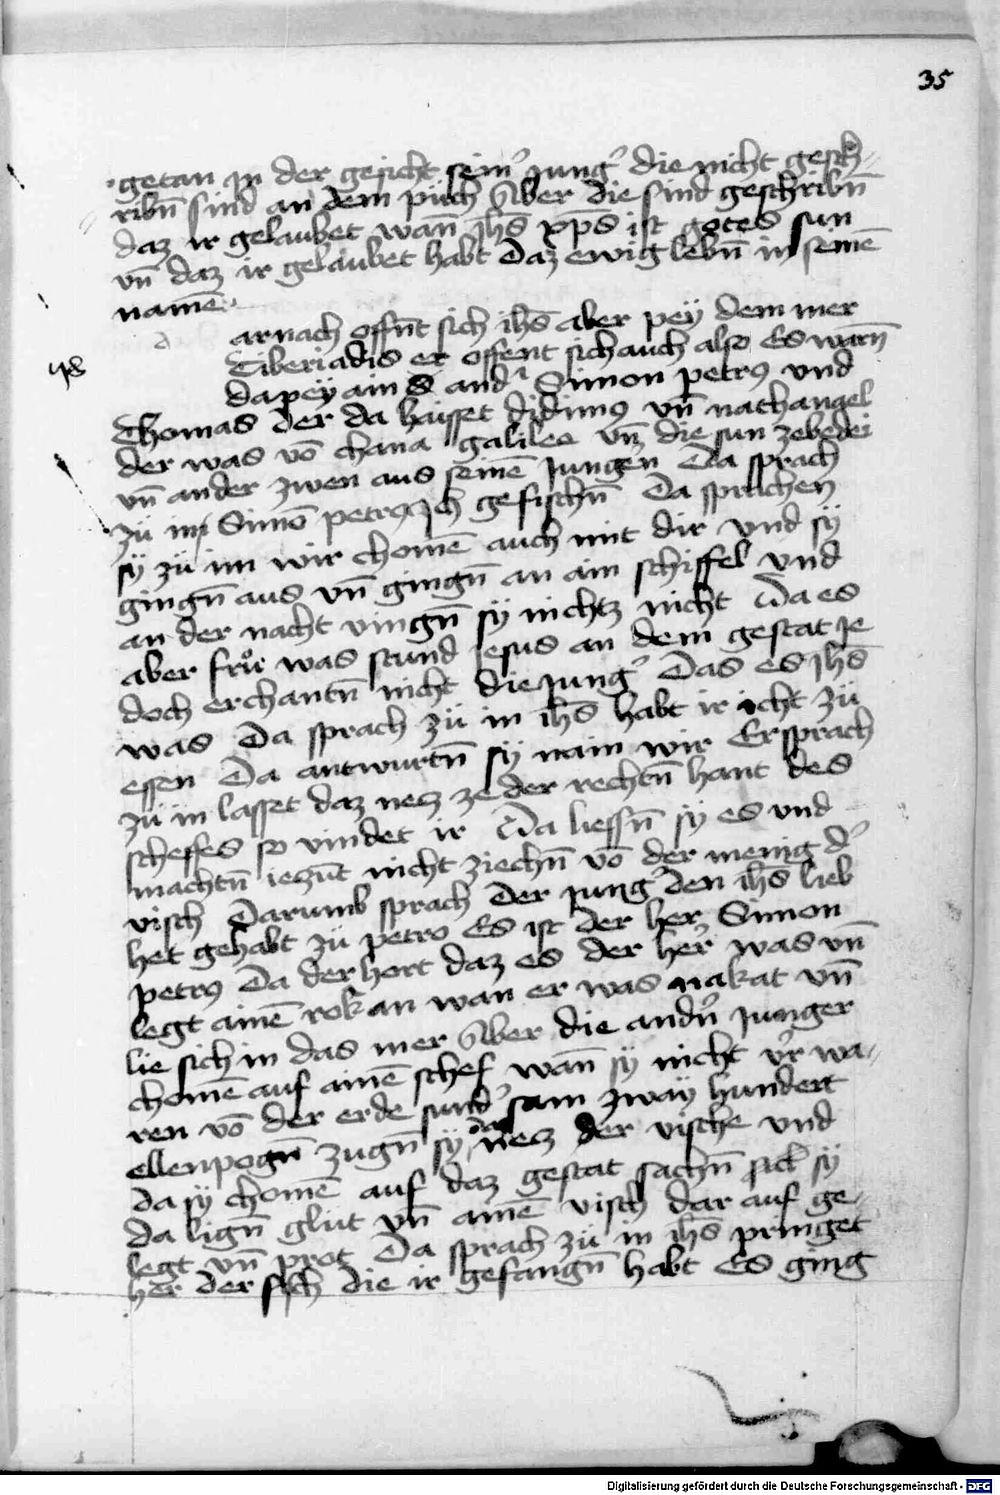 35
getan in der gesicht sein͛ iung͛ die nicht gesch„
ribn̄ sind an dem pu̇ch Aber die sind geschribn̄
daz ir gelaubet wan̄ ih̄s xp̄s ist gotes sun
vn̄ daz ir gelaubet habt Daz ewig lebn̄ in seinē
namē
arnach offn̄t sich ih̄s aber pey dem mer
Tiberiadis er offent sich auch also Es warn̄
da pey ain s and͛ Simon petrꝰ vnd
Thomas der da haisset didimꝰ vn̄ nathanael
der was vō chana galilee vn̄ die sun zebedei
vn̄ ander zwen aus seinē Jungern̄ Da sprach
zu̇ im Simō petrꝰ Ich ge fischn̄ Da sprachen
sy zu̇ im wir chomē auch mit dir vnd sy
gingn̄ aus vn̄ gingn̄ an ain schiffel vnd
an der nacht vingn̄ sy nichtz nicht Da es
aber frůe was stund iesus an dem gestat Je
doch erchantn̄ nicht die Jung͛ Das es Jh̄s
was Da sprach zu̇ in ih̄s habt ir icht zu̇
essen Da antwurtn̄ sy nain wir Er sprach
zu̇ in lasset daz netz ze der rechtn̄ hant des
scheffes so vindet ir Da liessn̄ sy es vnd
machtn̄ iezūt nicht ziechn̄ vō der menig d͛
visch Darumb sprach der Jung͛ den ih̄s lieb
het gehabt zu̇ petro Es ist der her Simon
petrꝰ Da der hort daz es der her͛ was vn̄
legt ainē rok an wan er was nakat vn̄
lie sich in das mer Aber die andn̄͛ Junger
chomē auf ainē schef wan̄ sy nicht v͛r wa„
ren vō der erde sund͛ sam zway hundert
ellenpogn̄ zugn̄ sy daz netz der vische vnd
da sy chomē auf daz gestat sachn̄ sich sy
da lign̄ glu̇t vn̄ ainē visch dar auf ge„
legt vn̄ prot Da sprach zu̇ in ih̄s pringet
her der fisch die ir gefangn̄ habt Es ging
Digitalisierung gefördert durch die Deutsche Forschungsgemeinschaft - DFG